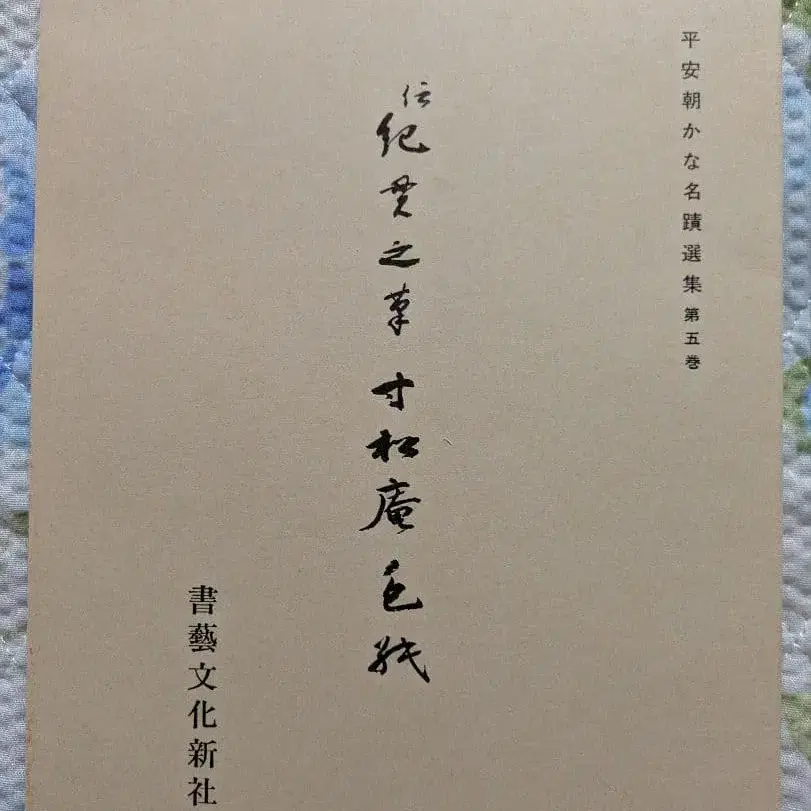 平安朝かな名蹟選集 第五巻
伝紀貫之筆 寸松庵色紙
書藝文化新社